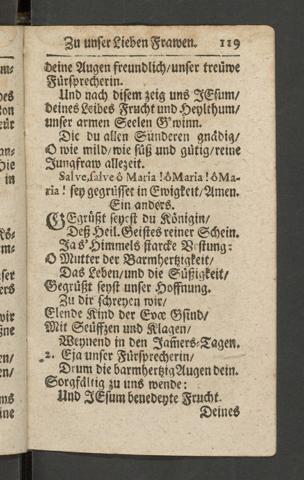 Zu unser Lieben Frawen. 119
deine Augen freundlich/unser treüwe
Fürsprecherin.
Und nach disem zeig uns JEsum/
deines Leibes Frucht und Heylthum/
unser armen Seelen G'winn.
Die du allen Sünderen gnädig/
O wie mild/wie süß und gütig/reine
Jungfraw allezeit.
Salve, salve ô Maria! ô Maria! ô Ma-
ria! sey gegrüsset in Ewigkeit/Amen.
Ein anders.
GEgrüßt seyest du Königin/
Deß Heil. Geistes reiner Schein.
Ja s' Himmels starcke Vestung:
O Mutter der Barmhertzigkeit/
Das Leben/und die Süßigkeit/
Gegrüßt seyst unser Hoffnung.
Zu dir schreyen wir/
Elende Kind der Evæ Gsind/
Mit Seüffzen und Klagen/
Weynend in den Jam̃ers-Tagen.
2. Eja unser Fürsprecherin/
Drum die barmhertzig Augen dein.
Sorgfältig zu uns wende:
Und JEsum benedeyte Frucht.
Deines